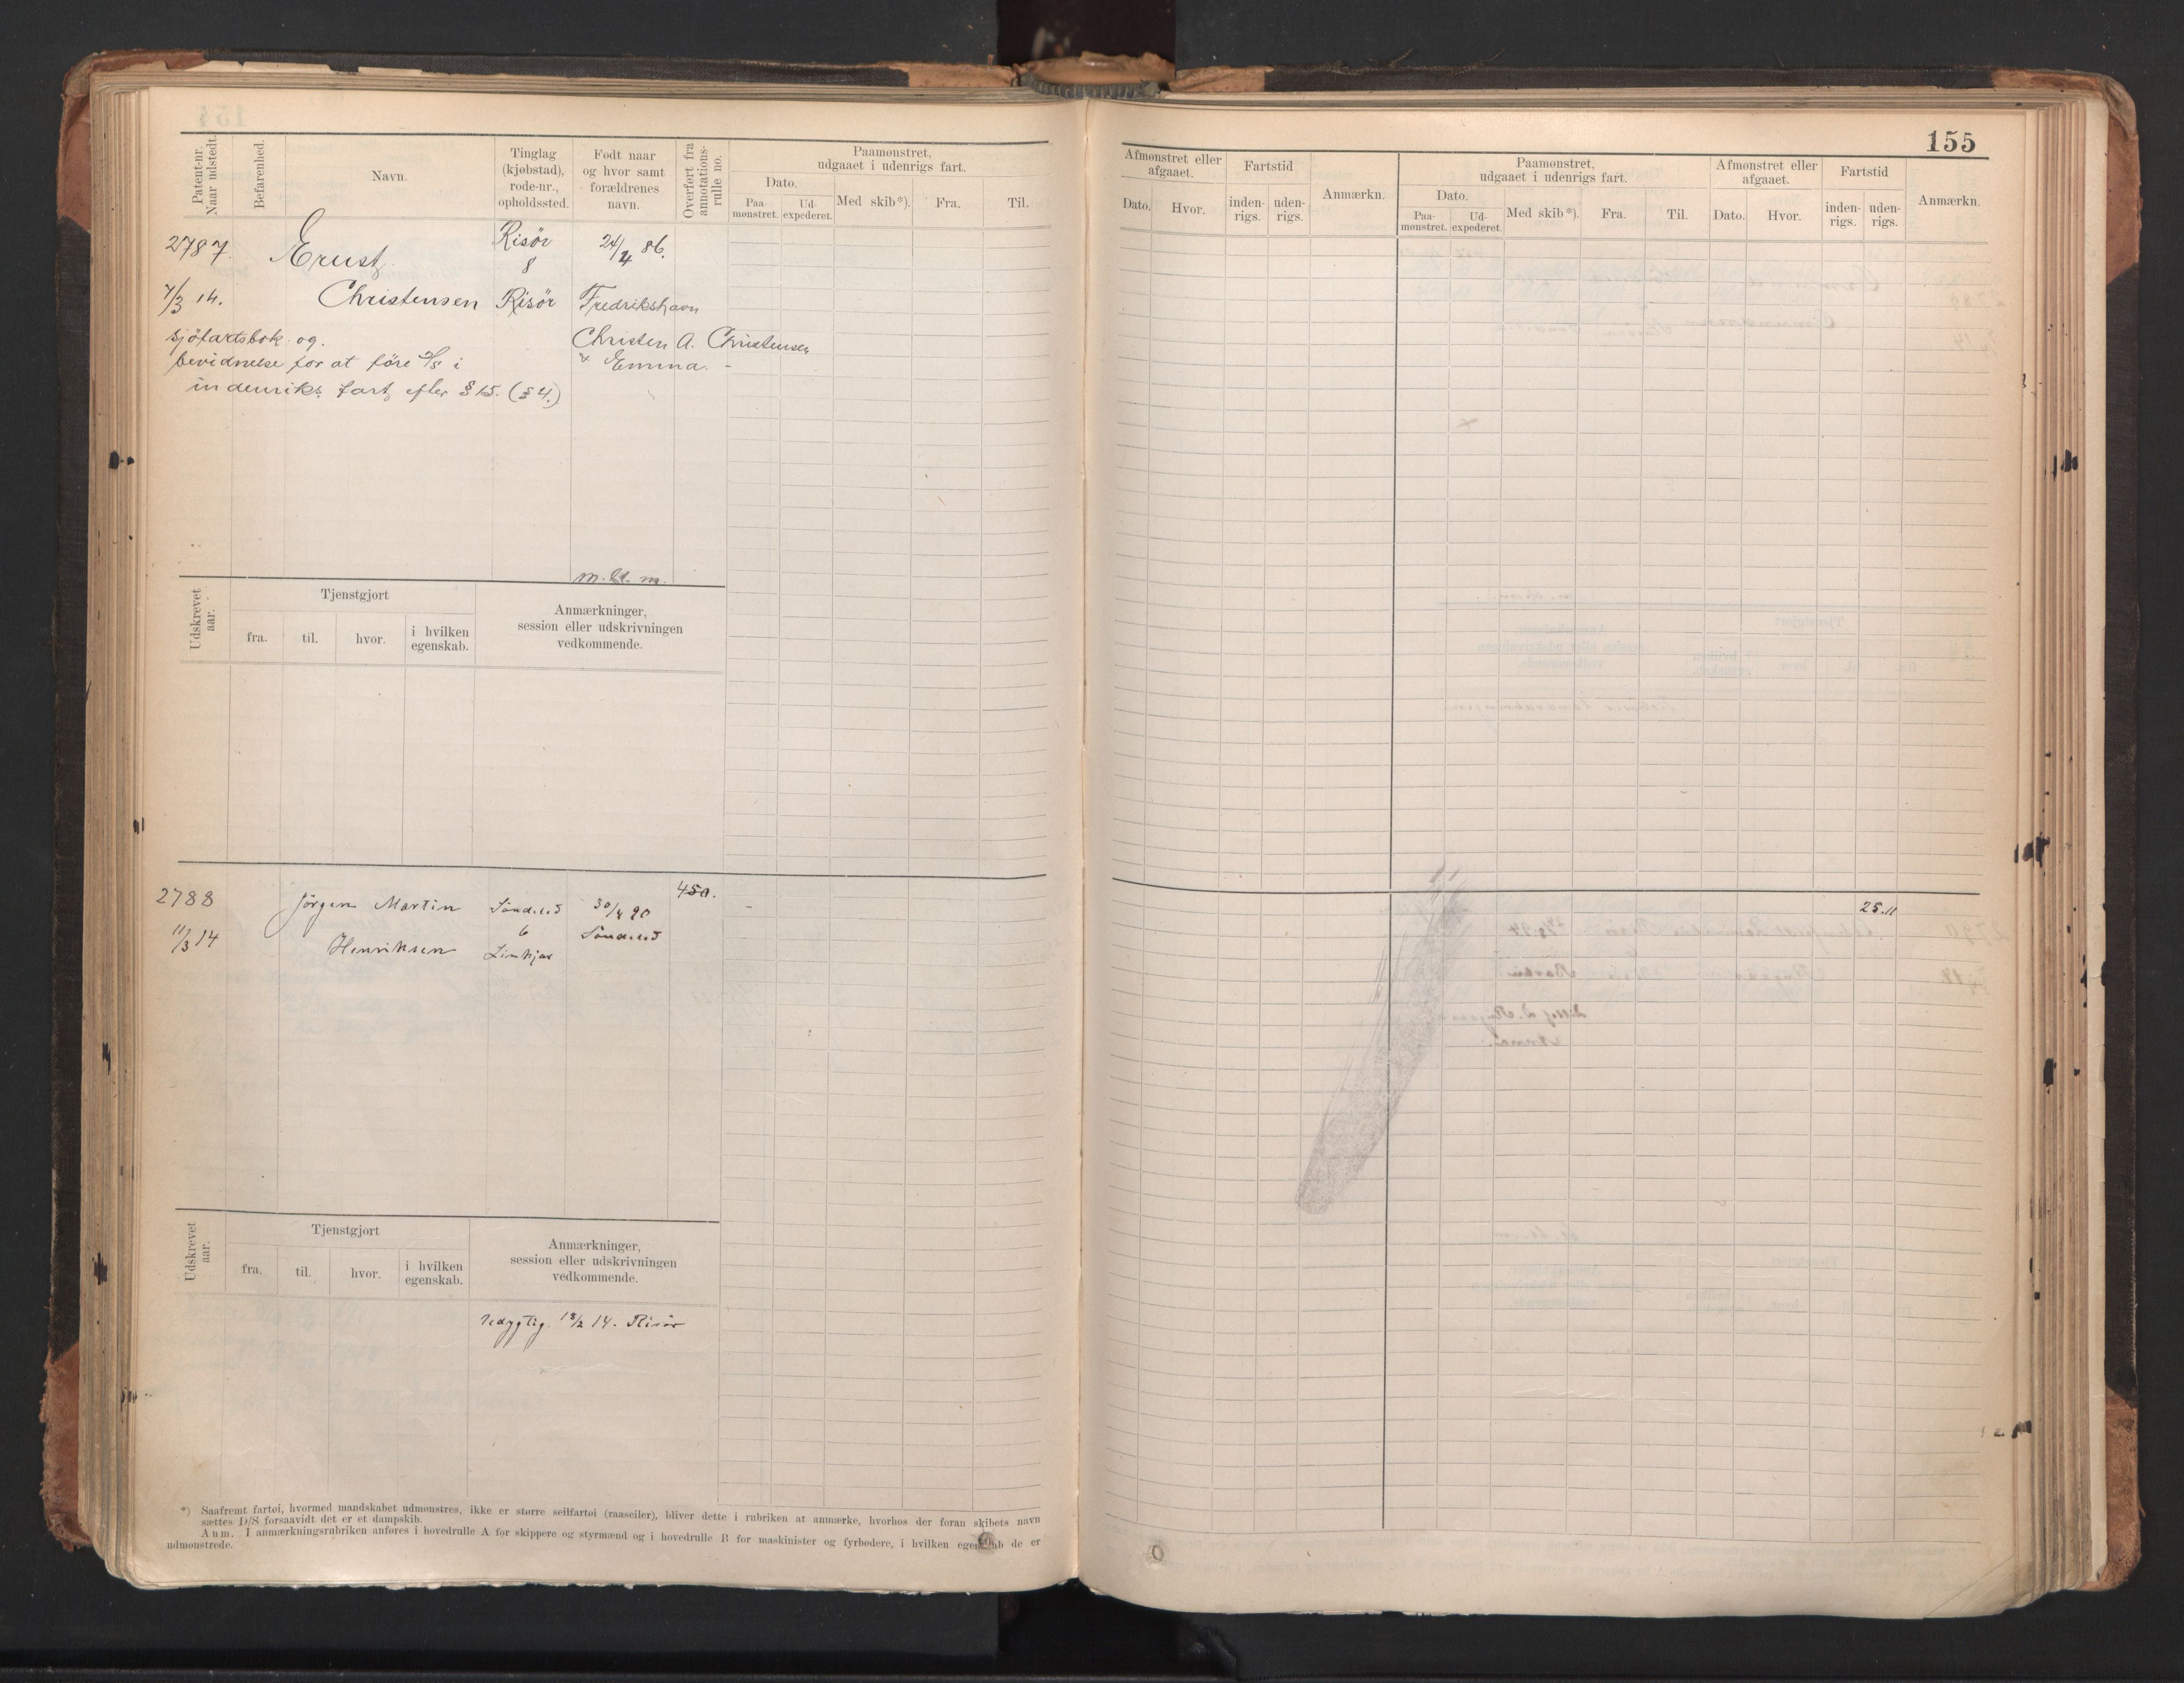 155
Patent-nr. Naar udstedt.
Befarenhed.
Navn.
Tinglag (kjøbstad), rode-nr., opholdssted.
Født naar og hvor samt forældrenes navn.
Overført fra annotations-rulle no.
Paamønstret, udgaaet i udenrigs fart.
Dato.
Paa-mønstret.
Ud-expederet.
Med skib*).
Fra.
Til.
2787.
Ernst
Risör
24/4 86.
8
7/3 14.
Christensen
Risör
Fredrikshavn
sjöfartsbok og
Christen A. Christensen
bevidnelse for at före D/S i
Emma.
indenriks fart efter § 15. (§ 4.)
m. bl. m.
Udskrevet aar.
Tjenstgjort
fra.
til.
hvor.
i hvilken egenskab.
Anmærkninger, session eller udskrivningen vedkommende.
2788
Jörgen Martin
Söndeled
30/4 90
450.
11/3 14
6
Söndeled
Henriksen
Udskrevet aar.
Tjenstgjort
fra.
til.
hvor.
i hvilken egenskab.
Anmærkninger, session eller udskrivningen vedkommende.
14. Risör
*) Saafremt fartøi, hvormed mandskabet udmønstres, ikke er større seilfartøi (raaseiler), bliver dette i rubriken at anmærke, hvorhos der foran skibets navn
sættes D/S forsaavidt det er et dampskib.
Anm. I anmærkningsrubriken anføres i hovedrulle A for skippere og styrmænd og i hovedrulle B for maskinister og fyrbødere, i hvilken egenskab de er
udmønstrede.
Afmønstret eller afgaaet.
Dato.
Hvor.
Fartstid
inden-rigs.
uden-rigs.
Anmærkn.
Paamønstret, udgaaet i udenrigs fart.
Dato.
Paa-mønstret.
Ud-expederet.
Med skib*).
Fra.
Til.
Afmønstret eller afgaaet.
Dato.
Hvor.
Fartstid
inden-rigs.
uden-rigs.
Anmærkn.
25.11